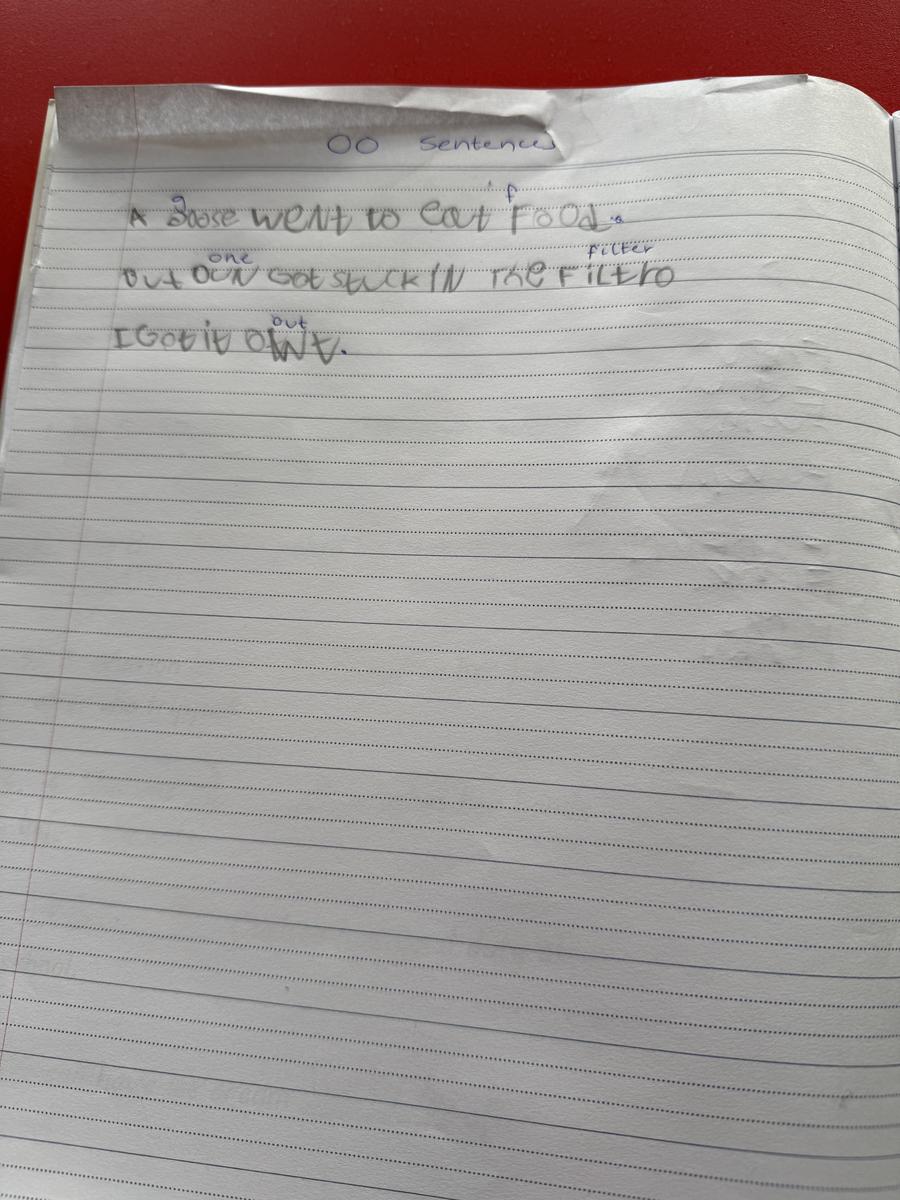 OO Sentences
f
A goose went to eat Food.
one filter
but OUN Got stuck IN The Filtro
out
I Got it OWt.